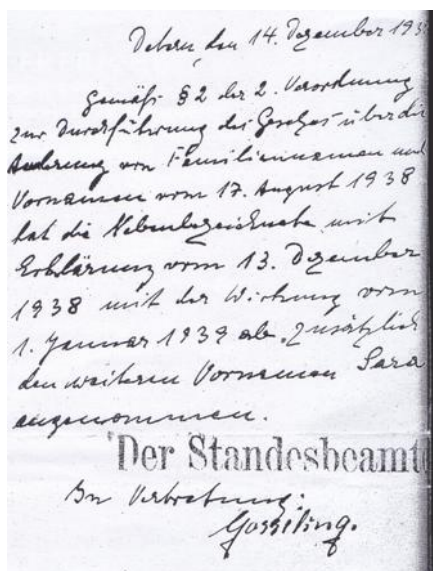 den 14. Dezember 193
Gemäß § 2 der 2. Verordnung
zur Durchführung des Gesetzes über die
Änderung von Familiennamen und
Vornamen vom 17. August 1938
hat die Nebenbezeichnete mit
Erklärung vom 13. Dezember
1938 mit der Wirkung vom
1. Januar 1939 ab zusätzlich
den weiteren Vornamen Sara
angenommen.
Der Standesbeamte
In Vertretung: